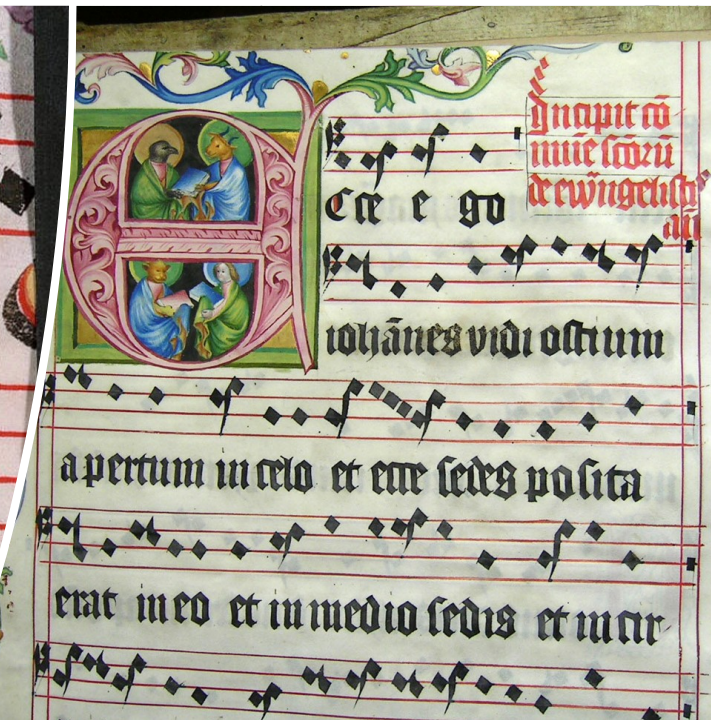 Incipit cō
mune sc̄oru
de ewangelistis
Ecce ego
iohānes vidi ostium
apertum in celo et ecce sedes posita
erat in eo et in medio sedis et in cir